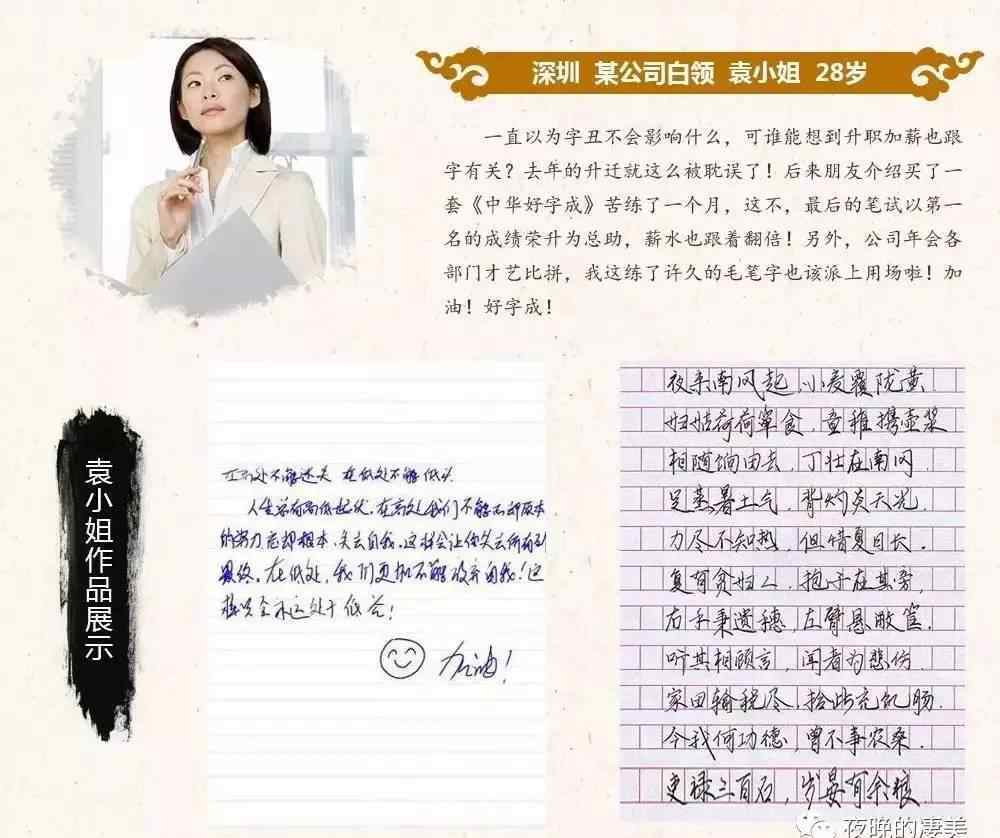 深圳 某公司白领 袁小姐 28岁
一直以为字丑不会影响什么，可谁能想到升职加薪也跟
字有关？去年的升迁就这么被耽误了！后来朋友介绍买了一
套《中华好字成》苦练了一个月，这不，最后的笔试以第一
名的成绩荣升为总助，薪水也跟着翻倍！另外，公司年会各
部门才艺比拼，我这练了许久的毛笔字也该派上用场啦！加
油！好字成！
袁小姐作品展示
处不能迷失 在低处不能低头
人生总有高低起伏，在高处我们不能忘却原本
的努力忘却根本，失去自我，这样会让你失去所有到
最终，在低处，我们更加不能放弃自我！这
样只会永远处于低谷！
加油！
夜来南风起，小麦覆陇黄.
妇姑荷荷箪食，童稚携壶浆
相随饷田去，丁壮在南冈.
足蒸暑土气，背灼炎天光
力尽不知热，但惜夏日长.
复有贫妇人，抱子在其旁，
右手秉遗穗，左臂悬敝筐.
听其相顾言，闻者为悲伤.
家田输税尽，拾此充饥肠.
今我何功德，曾不事农桑.
吏禄三百石，岁晏有余粮.
夜晚的凄美